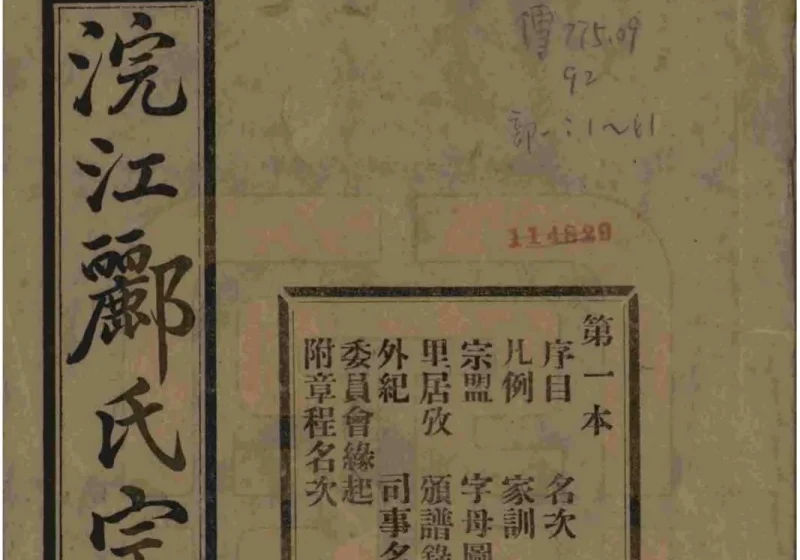 浣江酈氏宗
傳 775.09
92
部一:1~61
114829
第一本
序目 名次
凡例 家訓
宗盟 字母圖
里居攷 頒譜錄
外紀 司事名
委員會緣起
附章程名次